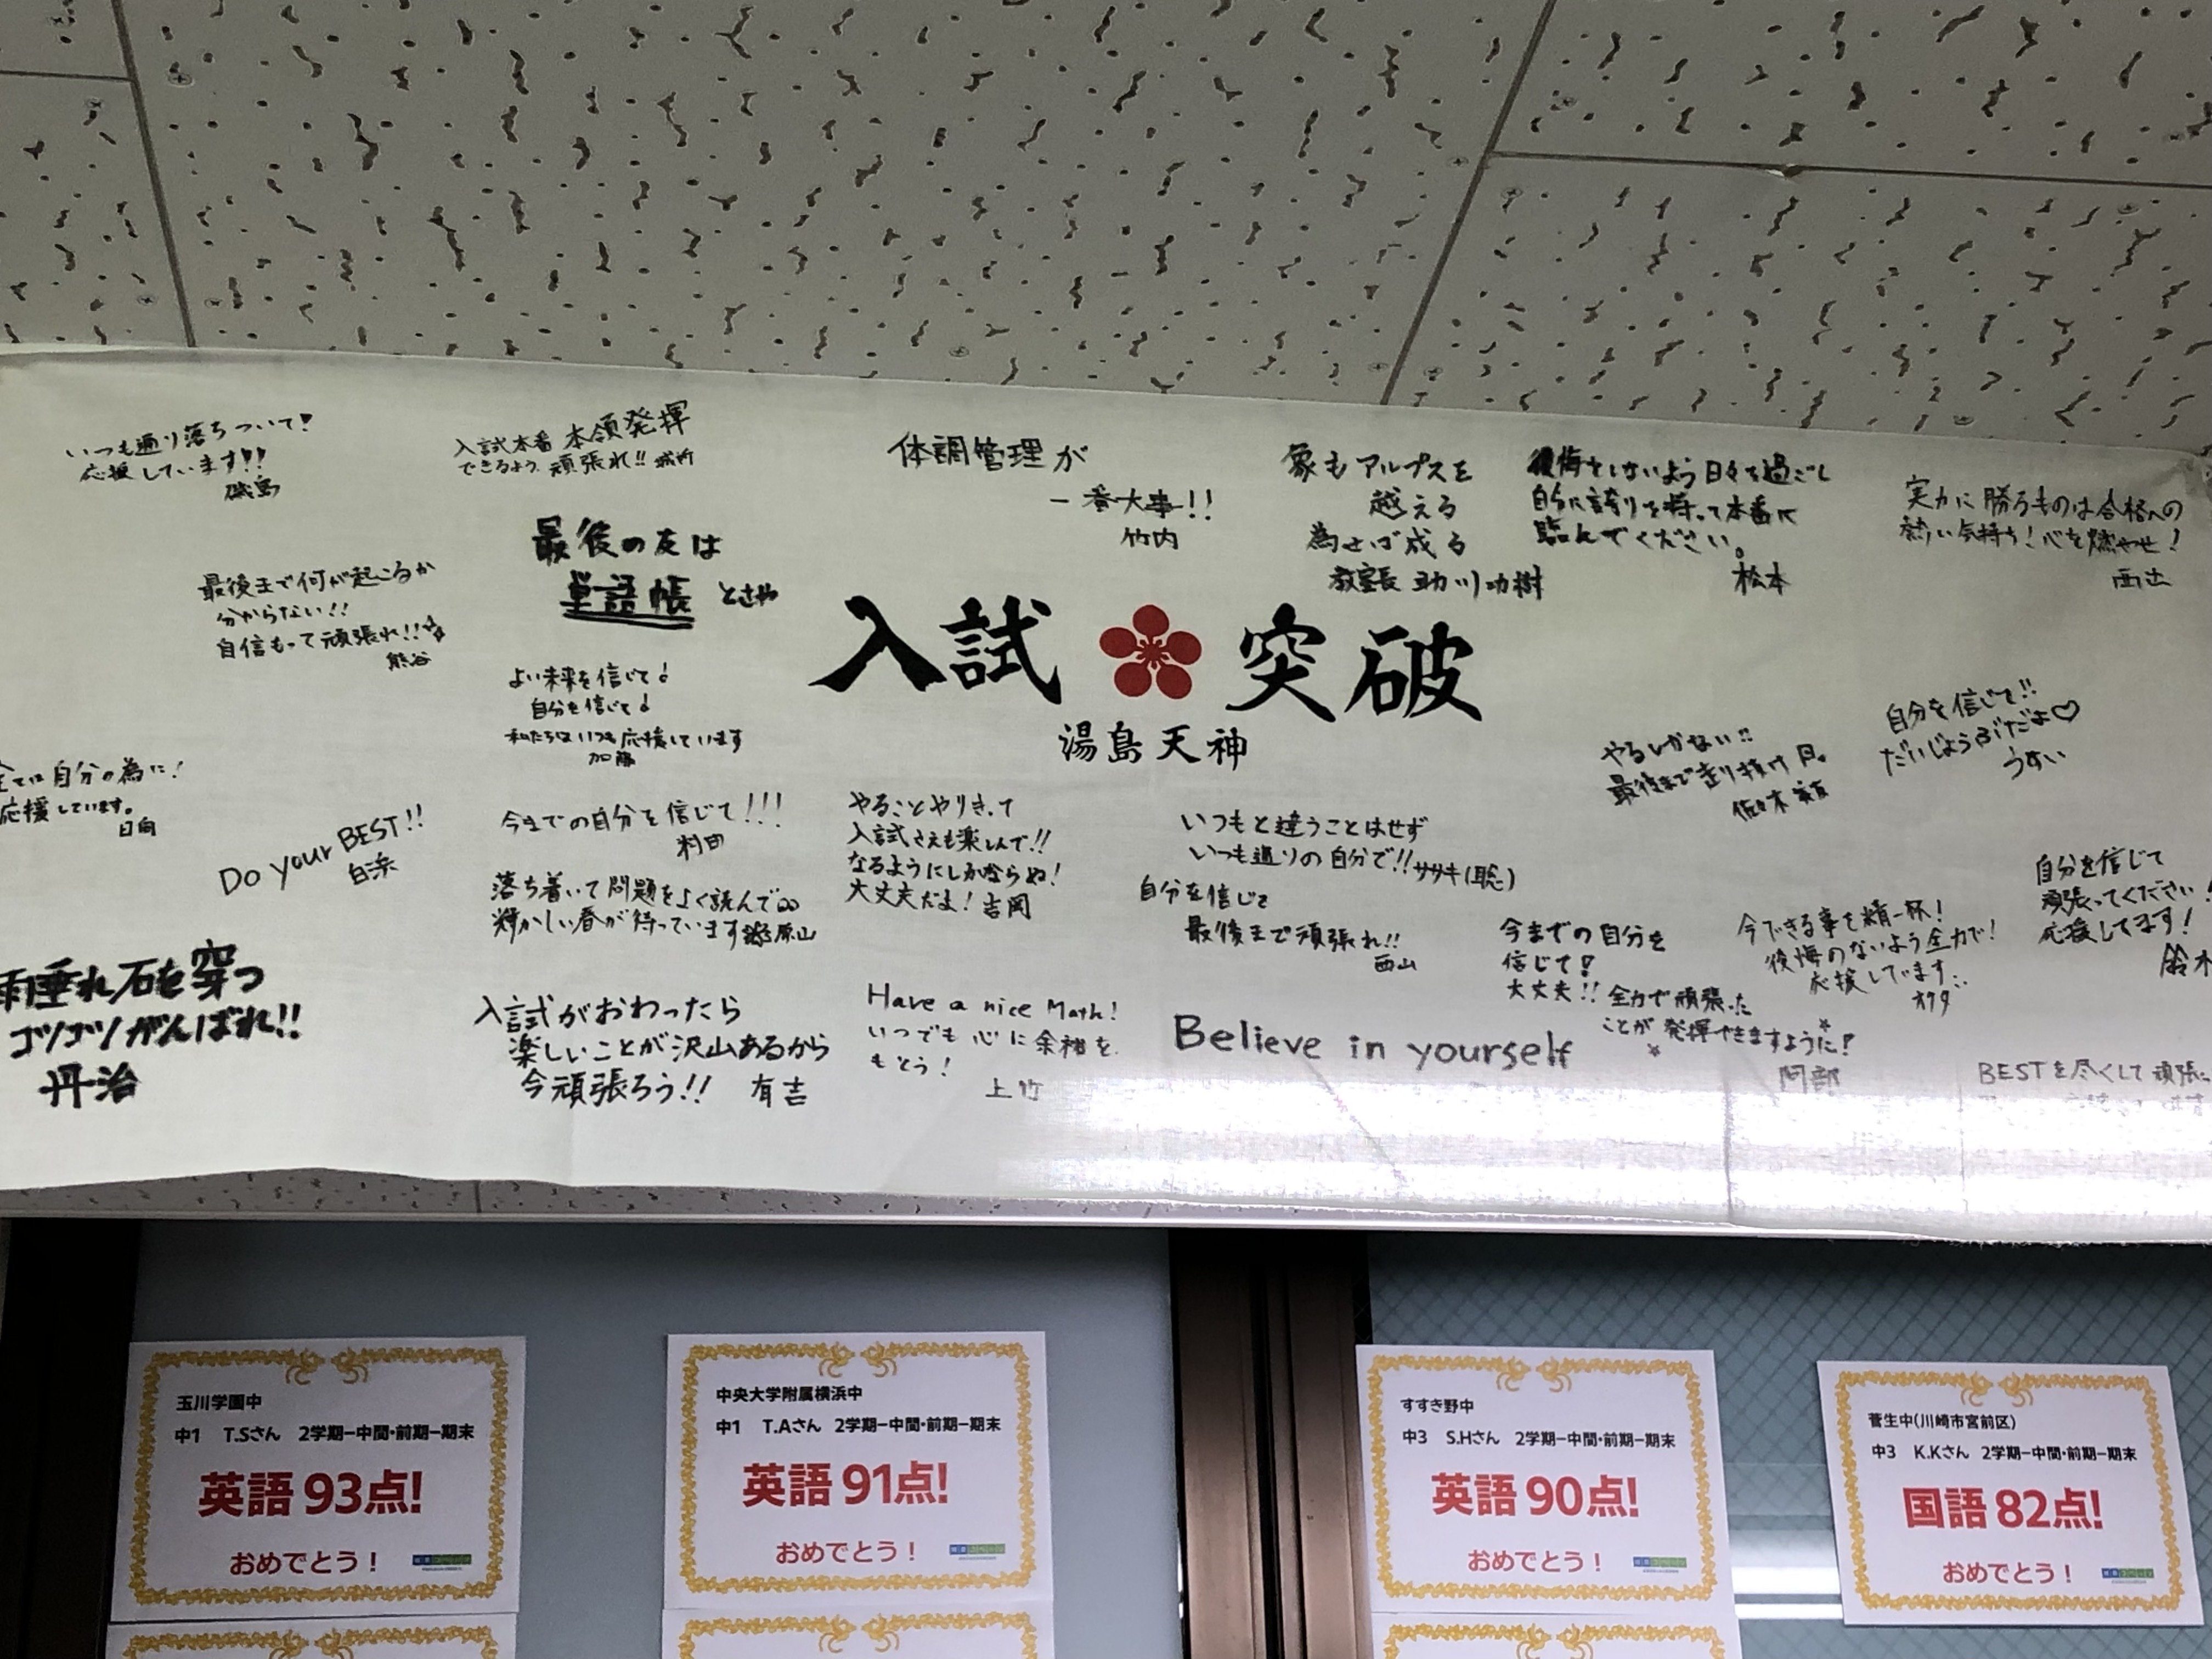 いつも通り落ちついて!
応援しています!!
磯島
入試本番 本領発揮
できるよう 頑張れ!!
体調管理が
一番大事!!
竹内
象もアルプスを
越える
為せば成る
教室長 助川功樹
後悔をしないよう日々を過ごし
自分に誇りを持って本番に
臨んでください。
松本
実力に勝るものは合格への
熱い気持ち!心を燃やせ!
西出
最後まで何が起こるか
分からない!!
自信もって頑張れ!!
熊谷
最後の友は
単語帳
入試 突破
湯島天神
よい未来を信じて♪
自分を信じて♪
私たちはいつも応援しています
加藤
全ては自分の為に!
応援しています。
日向
Do your BEST!!
白浜
今までの自分を信じて!!!
村田
落ち着いて問題をよく読んで
輝かしい春が待っています
やることやりきって
入試さえも楽しんで!!
なるようにしかならぬ!
大丈夫だよ! 吉岡
いつもと違うことはせず
いつも通りの自分で!! ササキ(聡)
自分を信じて
最後まで頑張れ!!
西山
やるしかない!!
最後まで走り抜け
佐々木
自分を信じて!!
だいじょうぶだよ♡
うすい
今までの自分を
信じて!
大丈夫!!
今できる事を精一杯!
後悔のないよう全力で!
応援しています
オクダ
自分を信じて
頑張ってください!
応援してます!
鈴木
雨垂れ石を穿つ
コツコツがんばれ!!
丹治
入試がおわったら
楽しいことが沢山あるから
今頑張ろう!! 有吉
Have a nice Math!
いつでも心に余裕を
もとう!
上竹
Believe in yourself
全力で頑張った
ことが発揮できますように!
阿部
BESTを尽くして頑張
玉川学園中
中1 T.Sさん 2学期−中間・前期−期末
英語 93点!
おめでとう!
中央大学附属横浜中
中1 T.Aさん 2学期−中間・前期−期末
英語 91点!
おめでとう!
すすき野中
中3 S.Hさん 2学期−中間・前期−期末
英語 90点!
おめでとう!
菅生中(川崎市宮前区)
中3 K.Kさん 2学期−中間・前期−期末
国語 82点!
おめでとう!